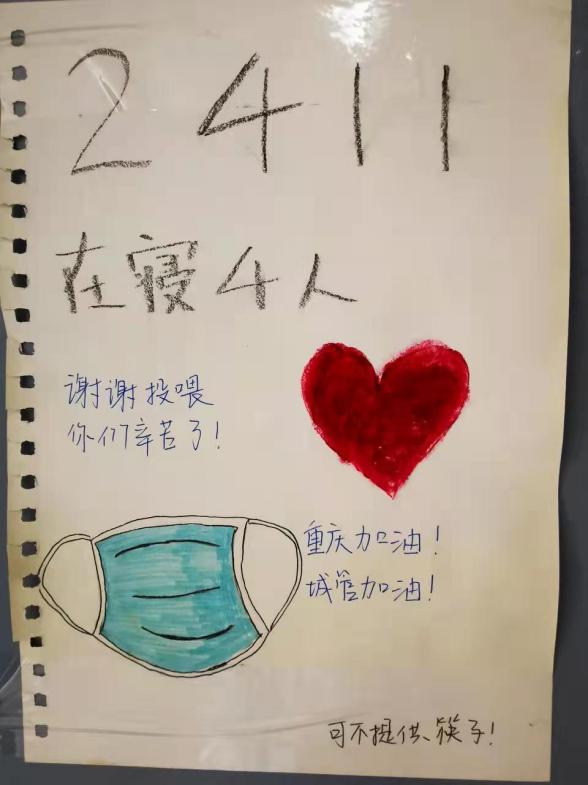 2411
在寝4人
谢谢投喂
你们辛苦了!
重庆加油!
城管加油!
可不提供筷子!